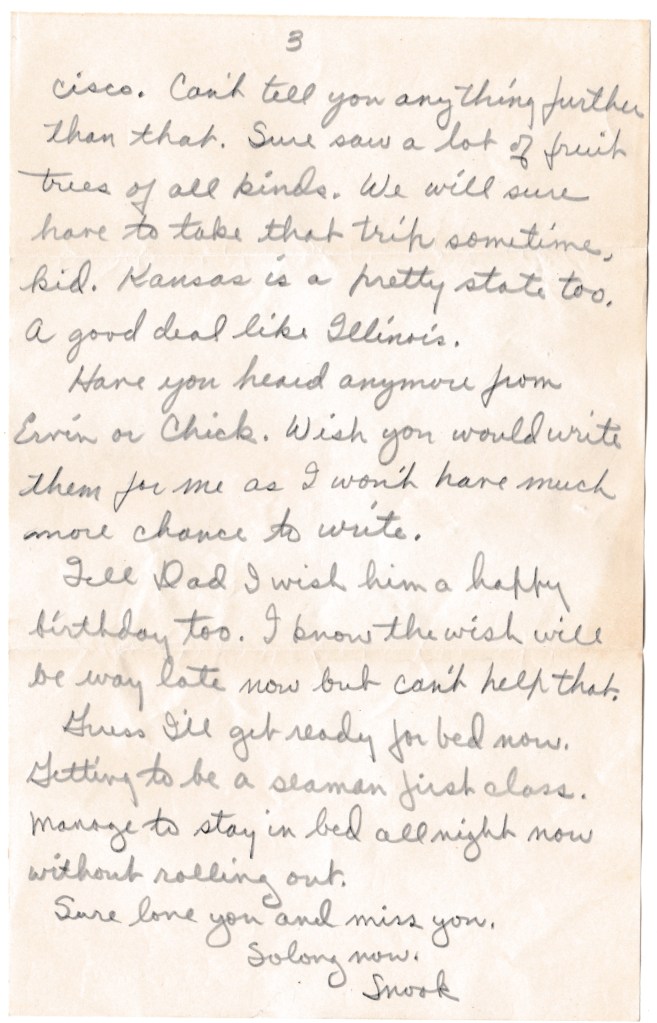 3
cisco. Can't tell you anything further
than that. Sure saw a lot of fruit
trees of all kinds. We will sure
have to take that trip sometime,
kid. Kansas is a pretty state too.
A good deal like Illinois.
Have you heard anymore from
Ervin or Chick. Wish you would write
them for me as I won't have much
more chance to write.
Tell Dad I wish him a happy
birthday too. I know the wish will
be way late now but can't help that.
Guess I'll get ready for bed now.
Getting to be a seaman first class.
Manage to stay in bed all night now
without rolling out.
Sure love you and miss you.
So long now.
Snook